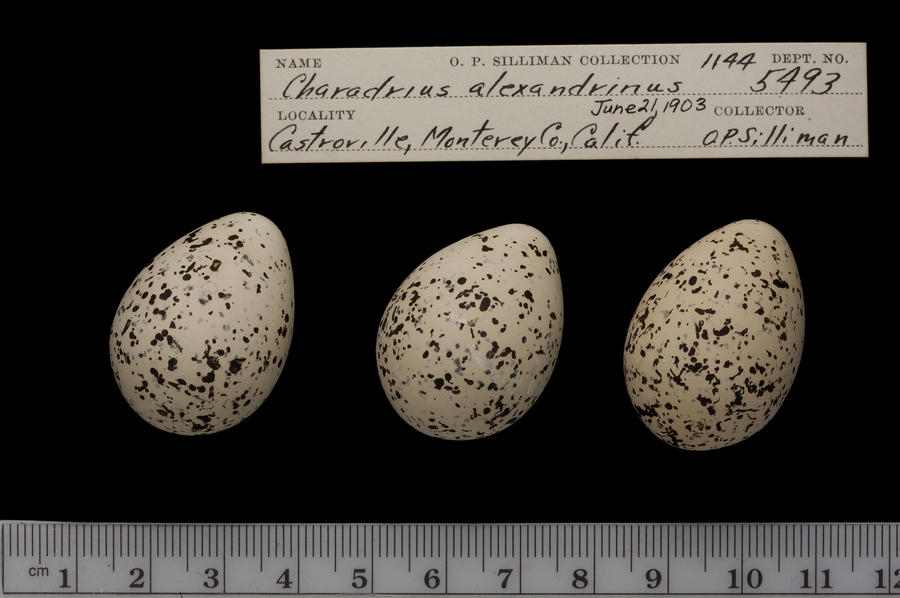 NAME O. P. SILLIMAN COLLECTION 1144 DEPT. NO.
Charadrius alexandrinus 5493
LOCALITY June 21, 1903 COLLECTOR
Castroville, Monterey Co., Calif. O.P. Silliman
cm 1 2 3 4 5 6 7 8 9 10 11 12